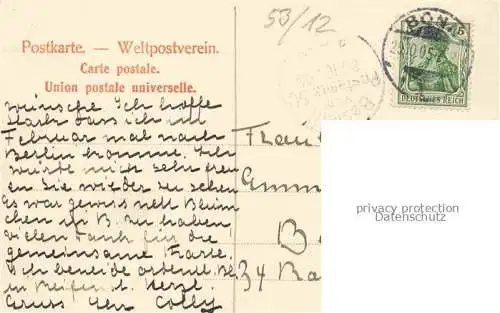 53/12
Postkarte. — Weltpostverein.
Carte postale.
Union postale universelle.
BONN
DEUTSCHES REICH
wünsche. Ich hoffe
stark dass ich im
Februar mal nach
Berlin komme. Ich
würde mich sehr freu
en Sie wieder zu sehen
Es war gewiss nett Blüm
chen in B. zu haben
vielen Dank für die
gemeinsame Karte.
Ich beneide
in
Gruss Ihr Colly
Fräul
B
34
privacy protection
Datenschutz